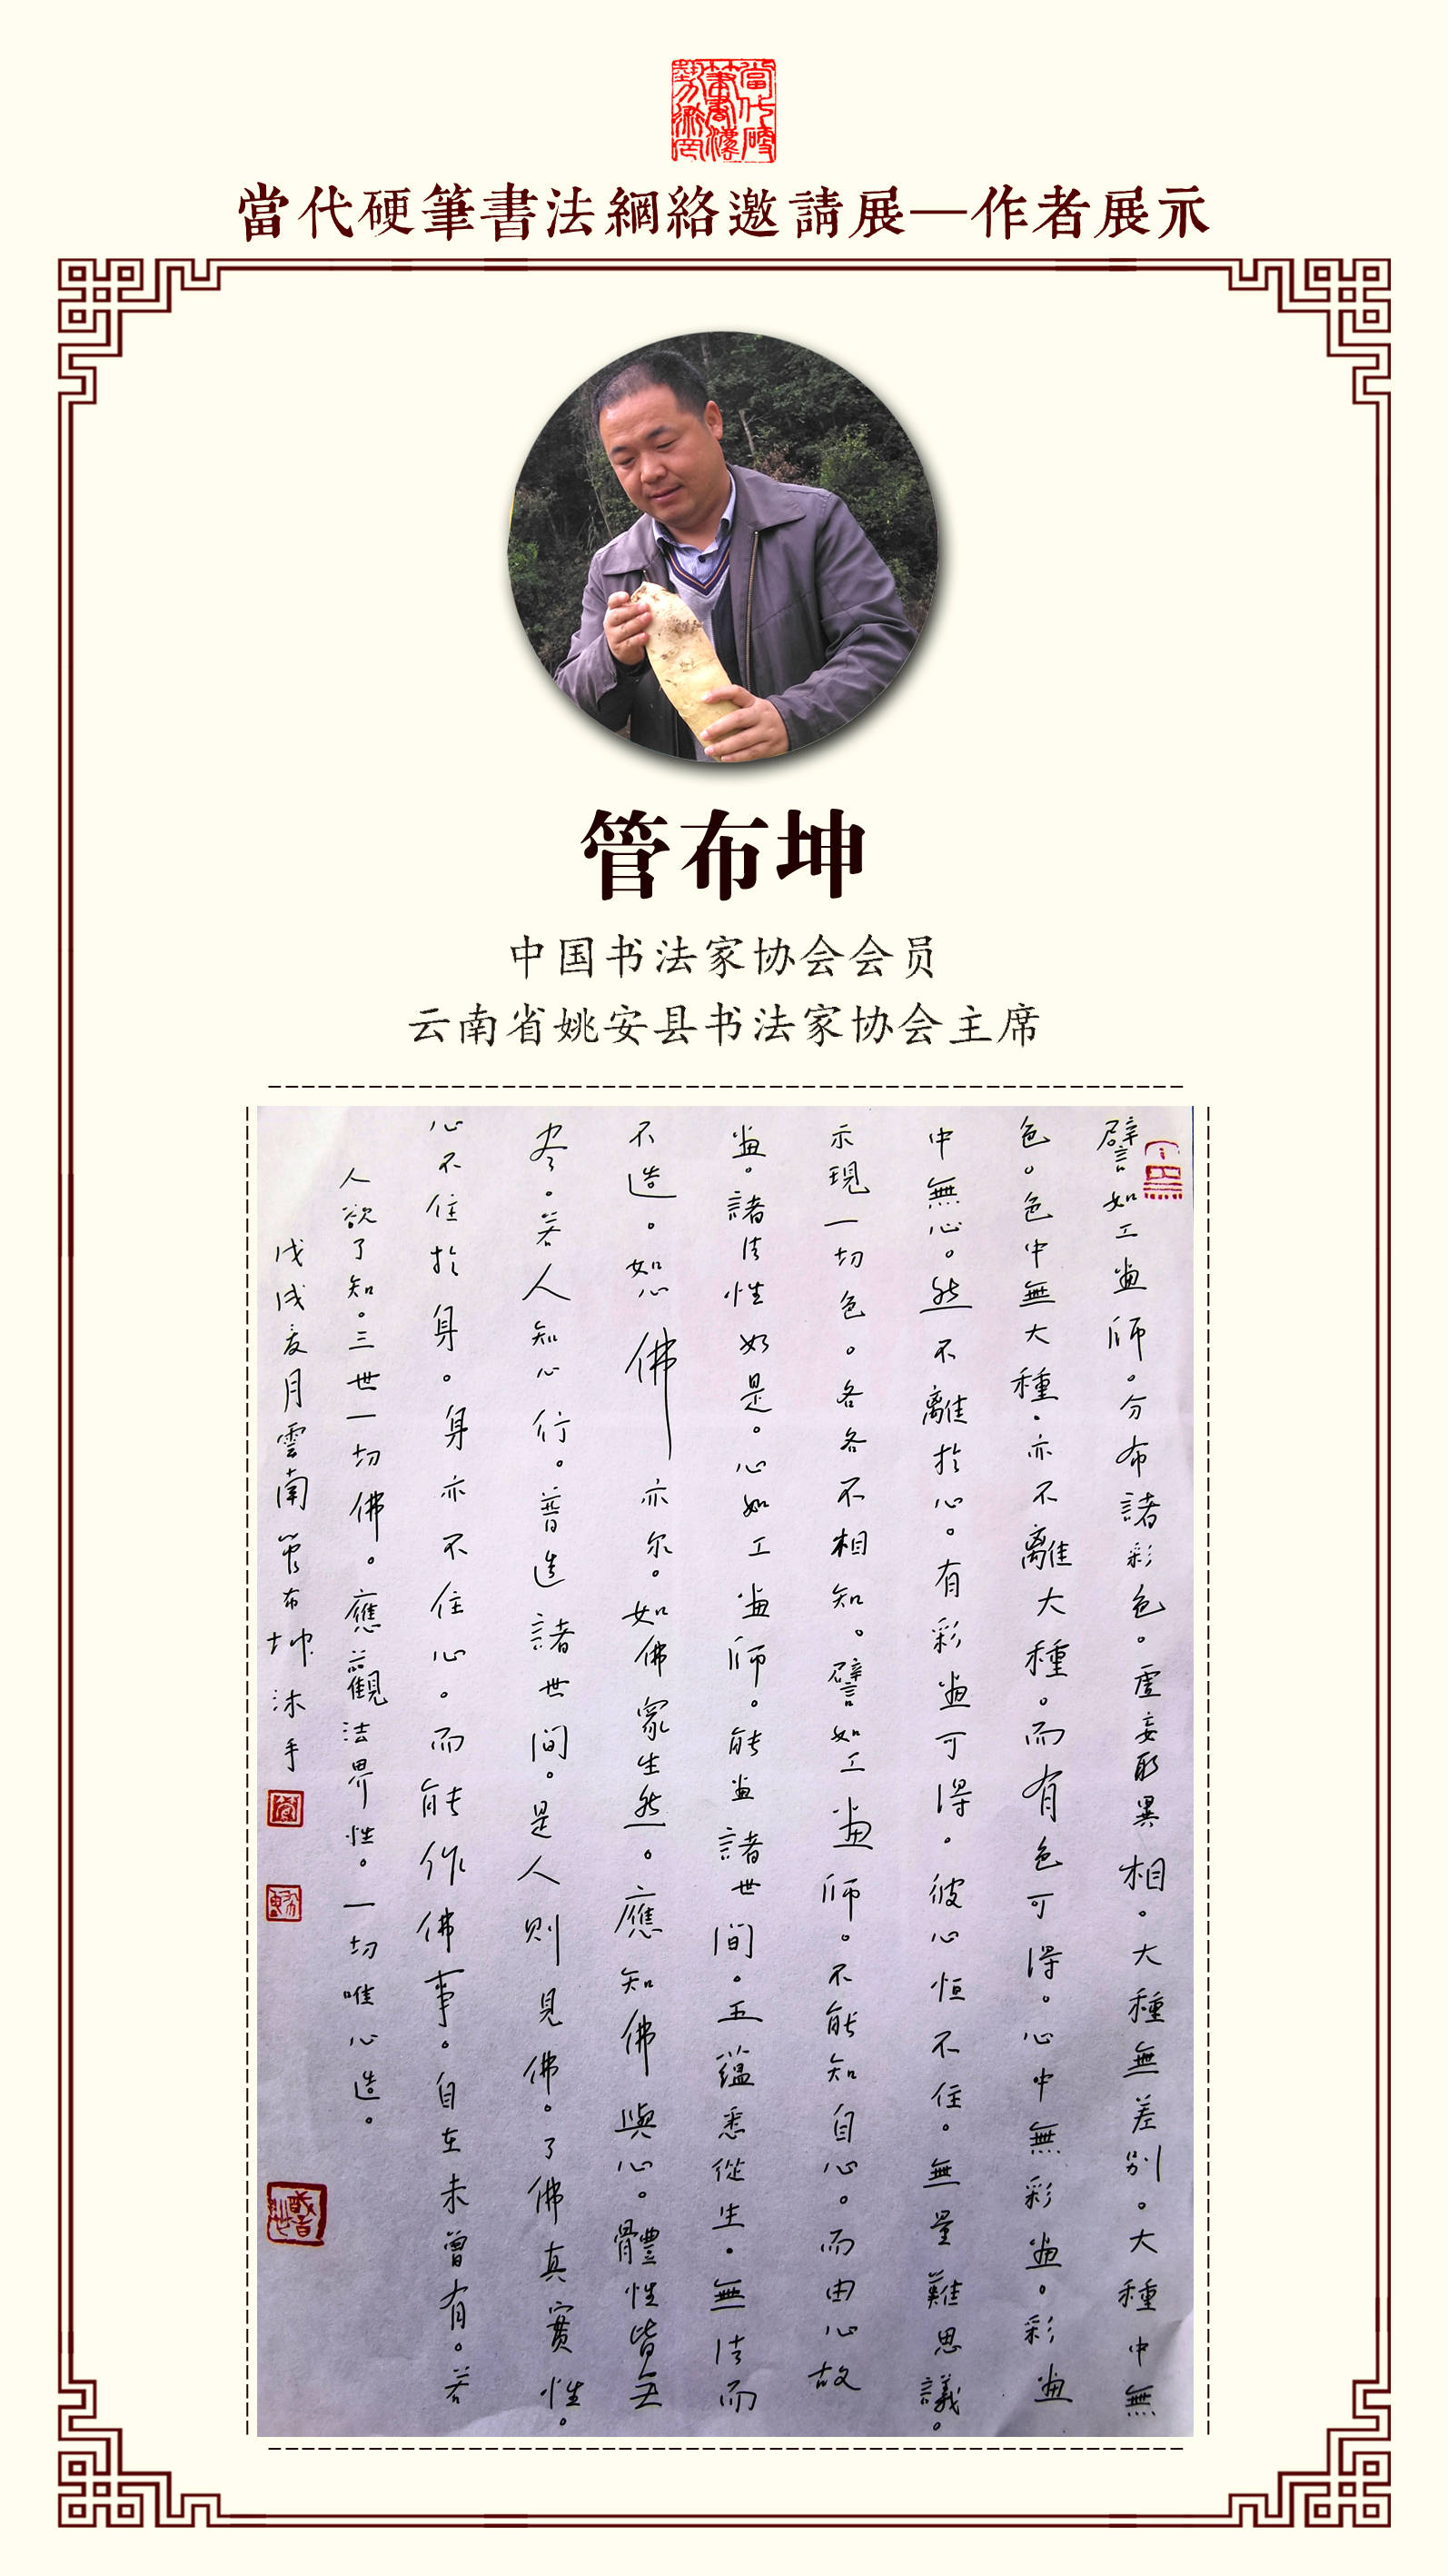 當代硬筆書法網絡邀請展
當代硬筆書法網絡邀請展—作者展示
管布坤
中国书法家协会会员
云南省姚安县书法家协会主席
譬如工畫師。分布諸彩色。虛妄取異相。大種無差別。大種中無
色。色中無大種。亦不離大種。而有色可得。心中無彩畫。彩畫
中無心。然不離於心。有彩畫可得。彼心恒不住。無量難思議。
示現一切色。各各不相知。譬如工畫師。不能知自心。而由心故
畫。諸法性如是。心如工畫師。能畫諸世間。五蘊悉從生。無法而
不造。如心佛亦尔。如佛眾生然。應知佛與心。體性皆无
尽。若人知心行。普造諸世間。是人則見佛。了佛真實性。
心不住於身。身亦不住心。而能作佛事。自在未曾有。若
人欲了知。三世一切佛。應觀法界性。一切唯心造。
戊戌夏月雲南管布坤沐手